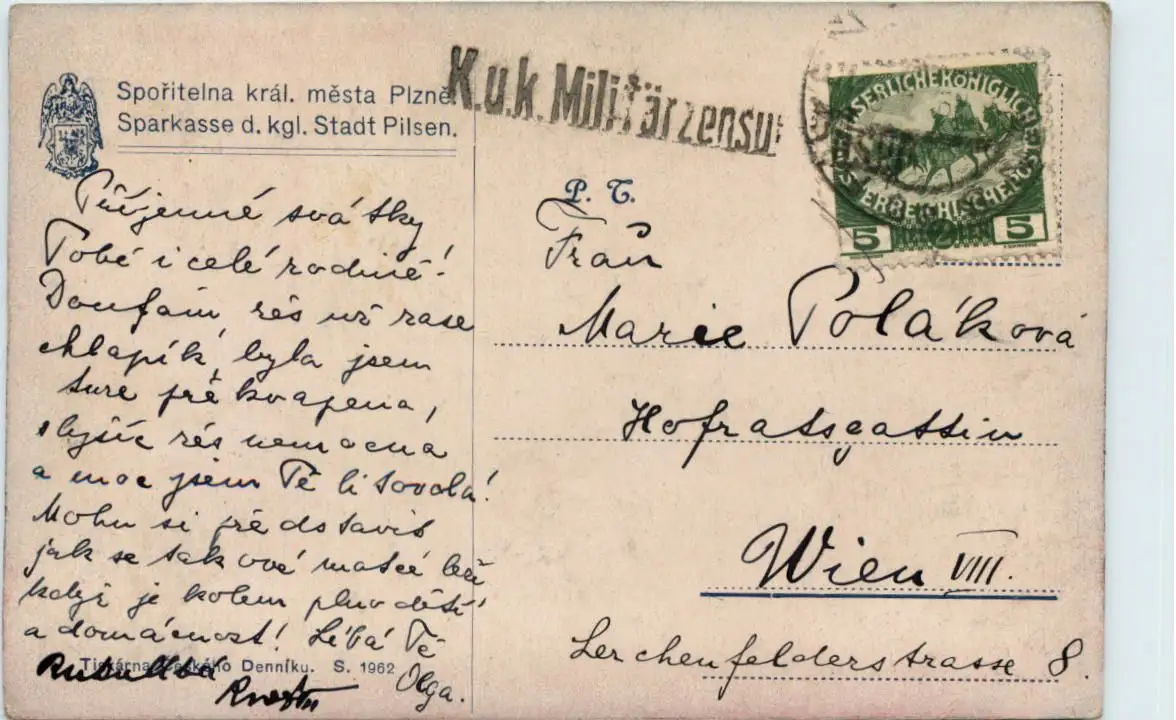 Spořitelna král. města Plzně
Sparkasse d. kgl. Stadt Pilsen.
K.u.k. Militärzensur
KAISERLICHE KÖNIGLICHE
ÖSTERREICHISCHE POST
5 5
Příjemné svátky
Tobě i celé rodině!
Doufám žes už zase
chlapík, byla jsem
překvapena,
slyšíc žes nemocná
a moc jsem Tě litovala!
Mohu si představit
jak se takové matce leží
když je kolem plno dětí
a domácnost! Líbá Tě
Olga.
Tiskárna Českého Denníku. S. 1962
P. T.
Frau
Marie Poláková
Hofratsgattin
Wien VIII.
Lerchenfelderstrasse 8.